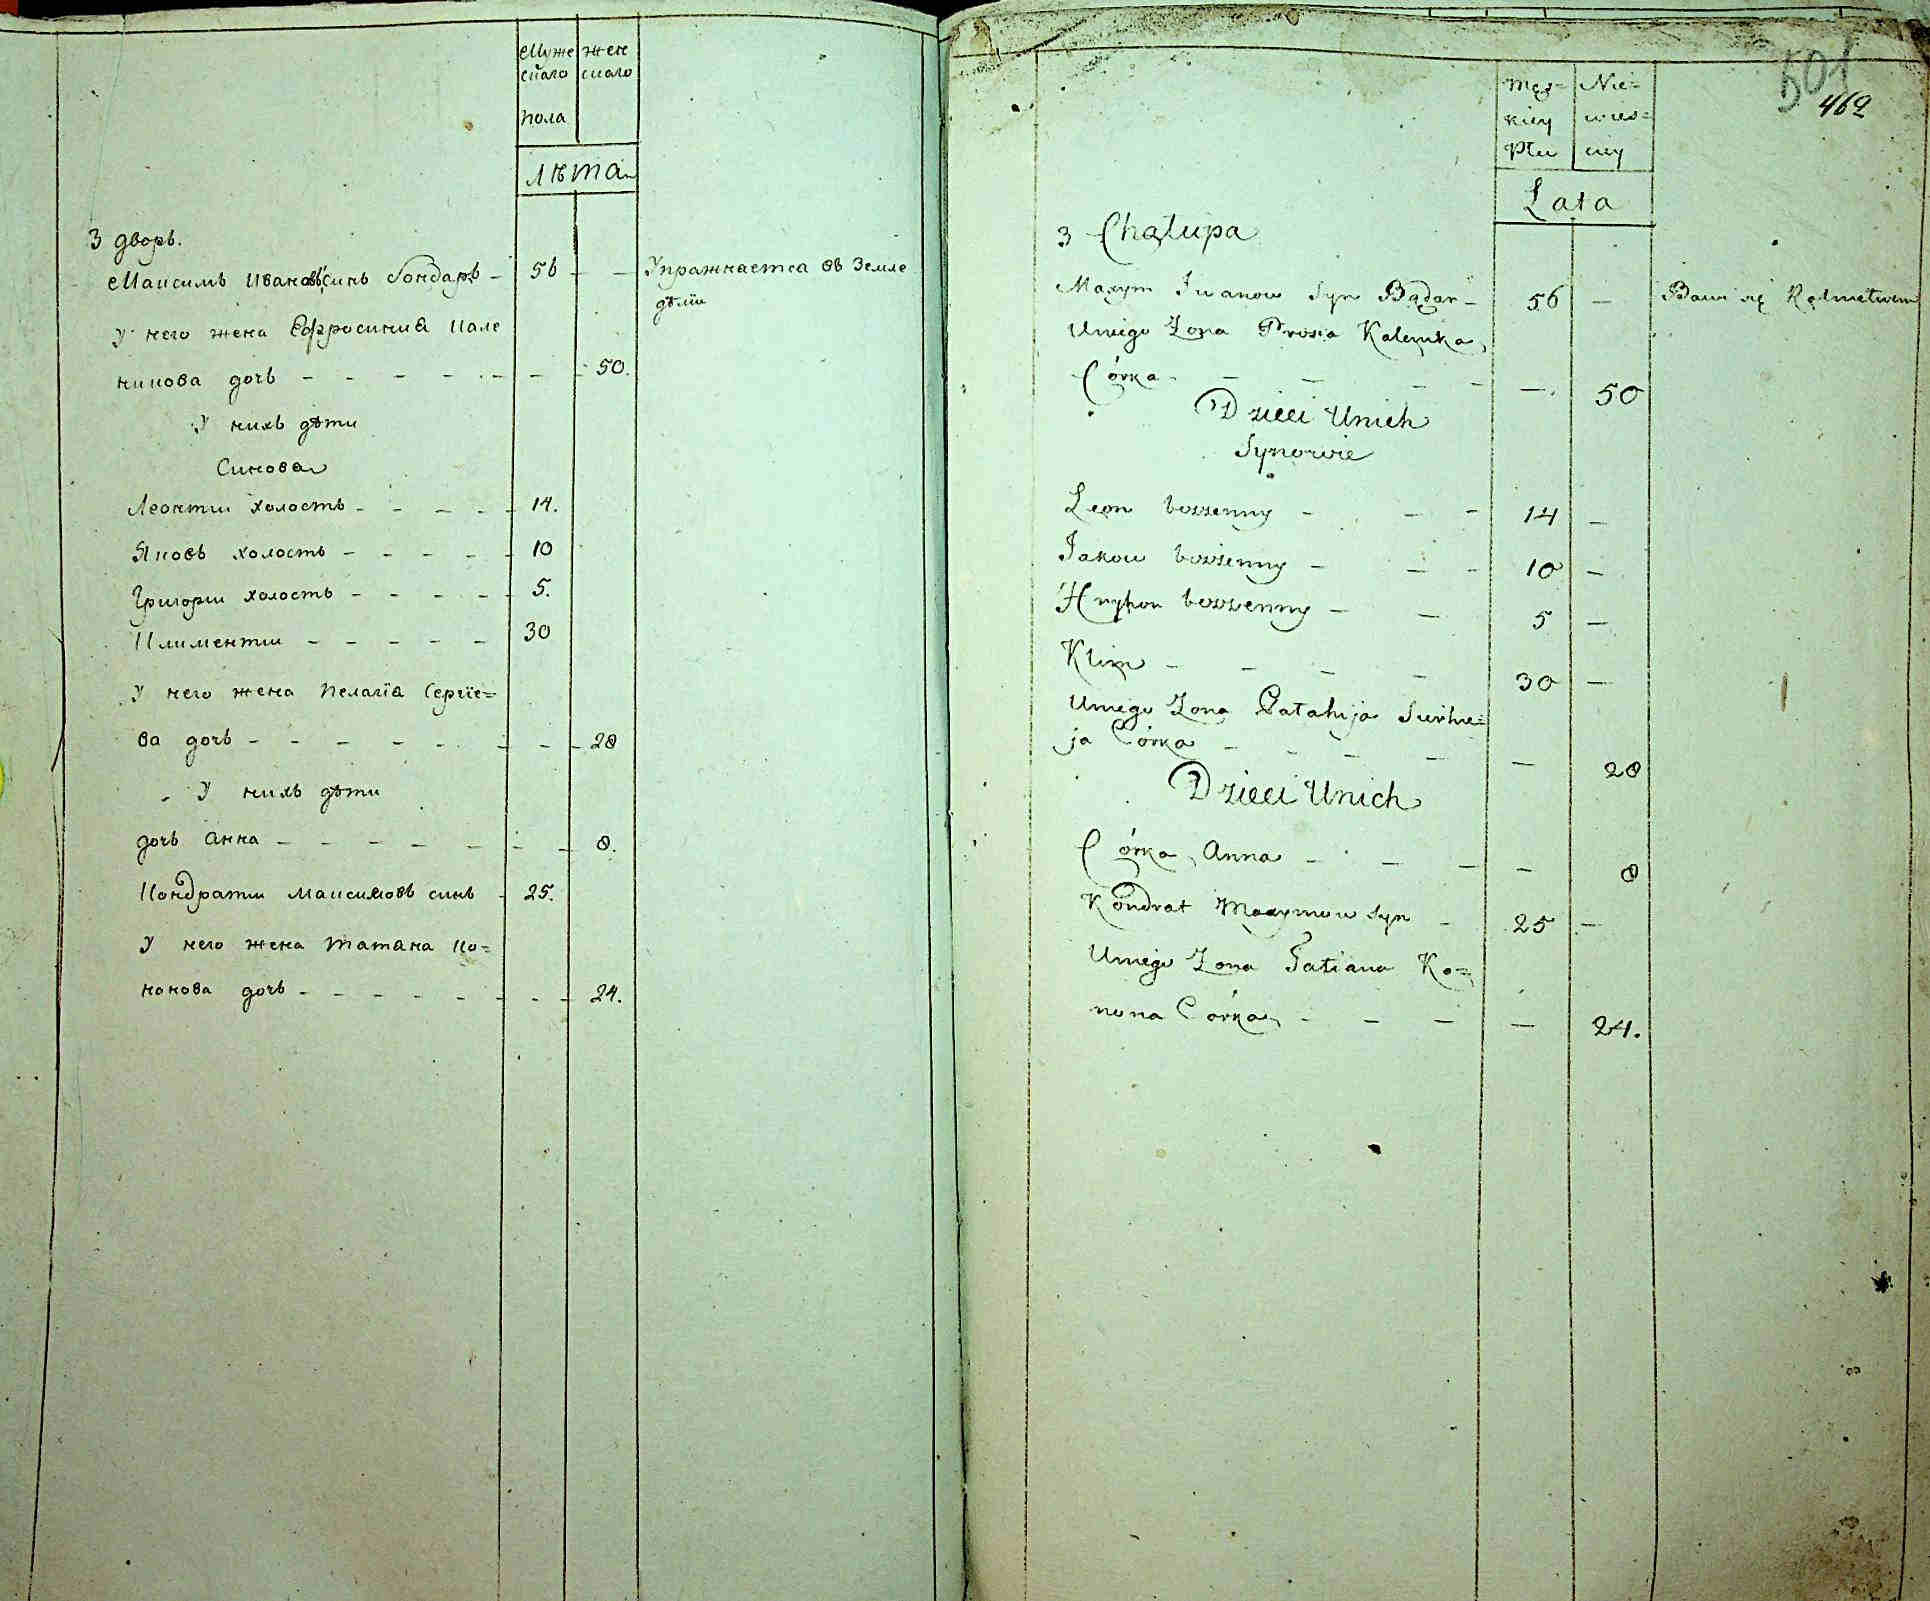 Муже жен
скаго скаго
пола
лѣта
3 дворъ.
Максимъ Ивановъ синъ Бондаръ - 56 - - Упражнаетса въ Земле
дѣлїи
У него жена Єфросиниа Кале
никова дочь - - - - - - - 50.
У нихъ дѣти
Синова
Леонтии холостъ - - - - - 14.
Яковъ холостъ - - - - - 10
Григории холостъ - - - - - 5.
Климентии - - - - - 30
У него жена Пелагїа Сергїе=
ва дочь - - - - - - - - 28
У нихъ дѣти
дочь Анна - - - - - - - 8.
Кондратии Максимовъ синъ - 25.
У него жена Татана Ко=
нонова дочь - - - - - - - - 24.
501
462
Męz= Nie=
kiey wies=
Płci ciey
Lata
3 Chałupa
Maxym Iwanow Syn Bądar - 56 - Bawi się Rolnictwem
Uniego Zona Prosia Kalenika
Córka - - - - - 50
Dzieci Unich
Synowie
Leon bezżenny - - - 14 -
Jakow bezżenny - - - 10 -
Hryhor bezżenny - - 5 -
Klim - - - - 30 -
Uniego Zona Pałahija Serhie=
ja Córka - - - - - 28
Dzieci Unich
Córka Anna - - - - 8
Kondrat Maxymow Syn - 25 -
Uniego Zona Tatiana Ko=
nona Córka - - - - 24.